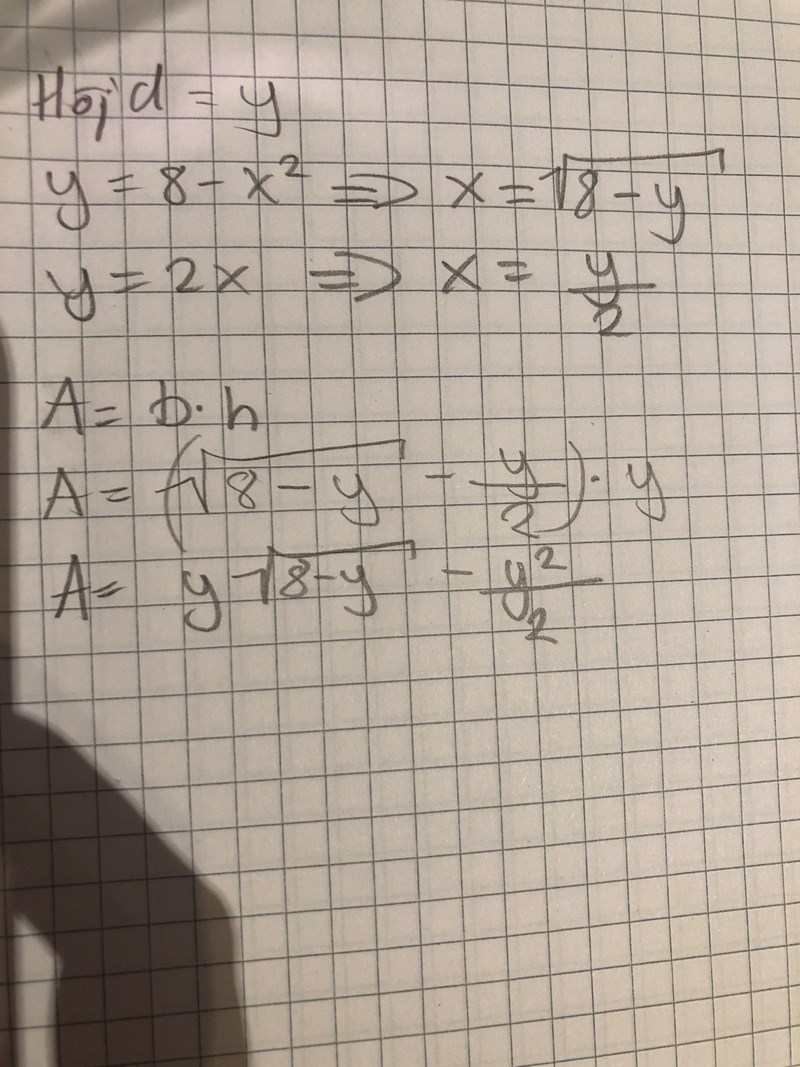 Höjd = y
y = 8 - x² => x = √(8 - y)
y = 2x => x = y/2
A = b · h
A = (√(8 - y) - y/2) · y
A = y √(8-y) - y²/2